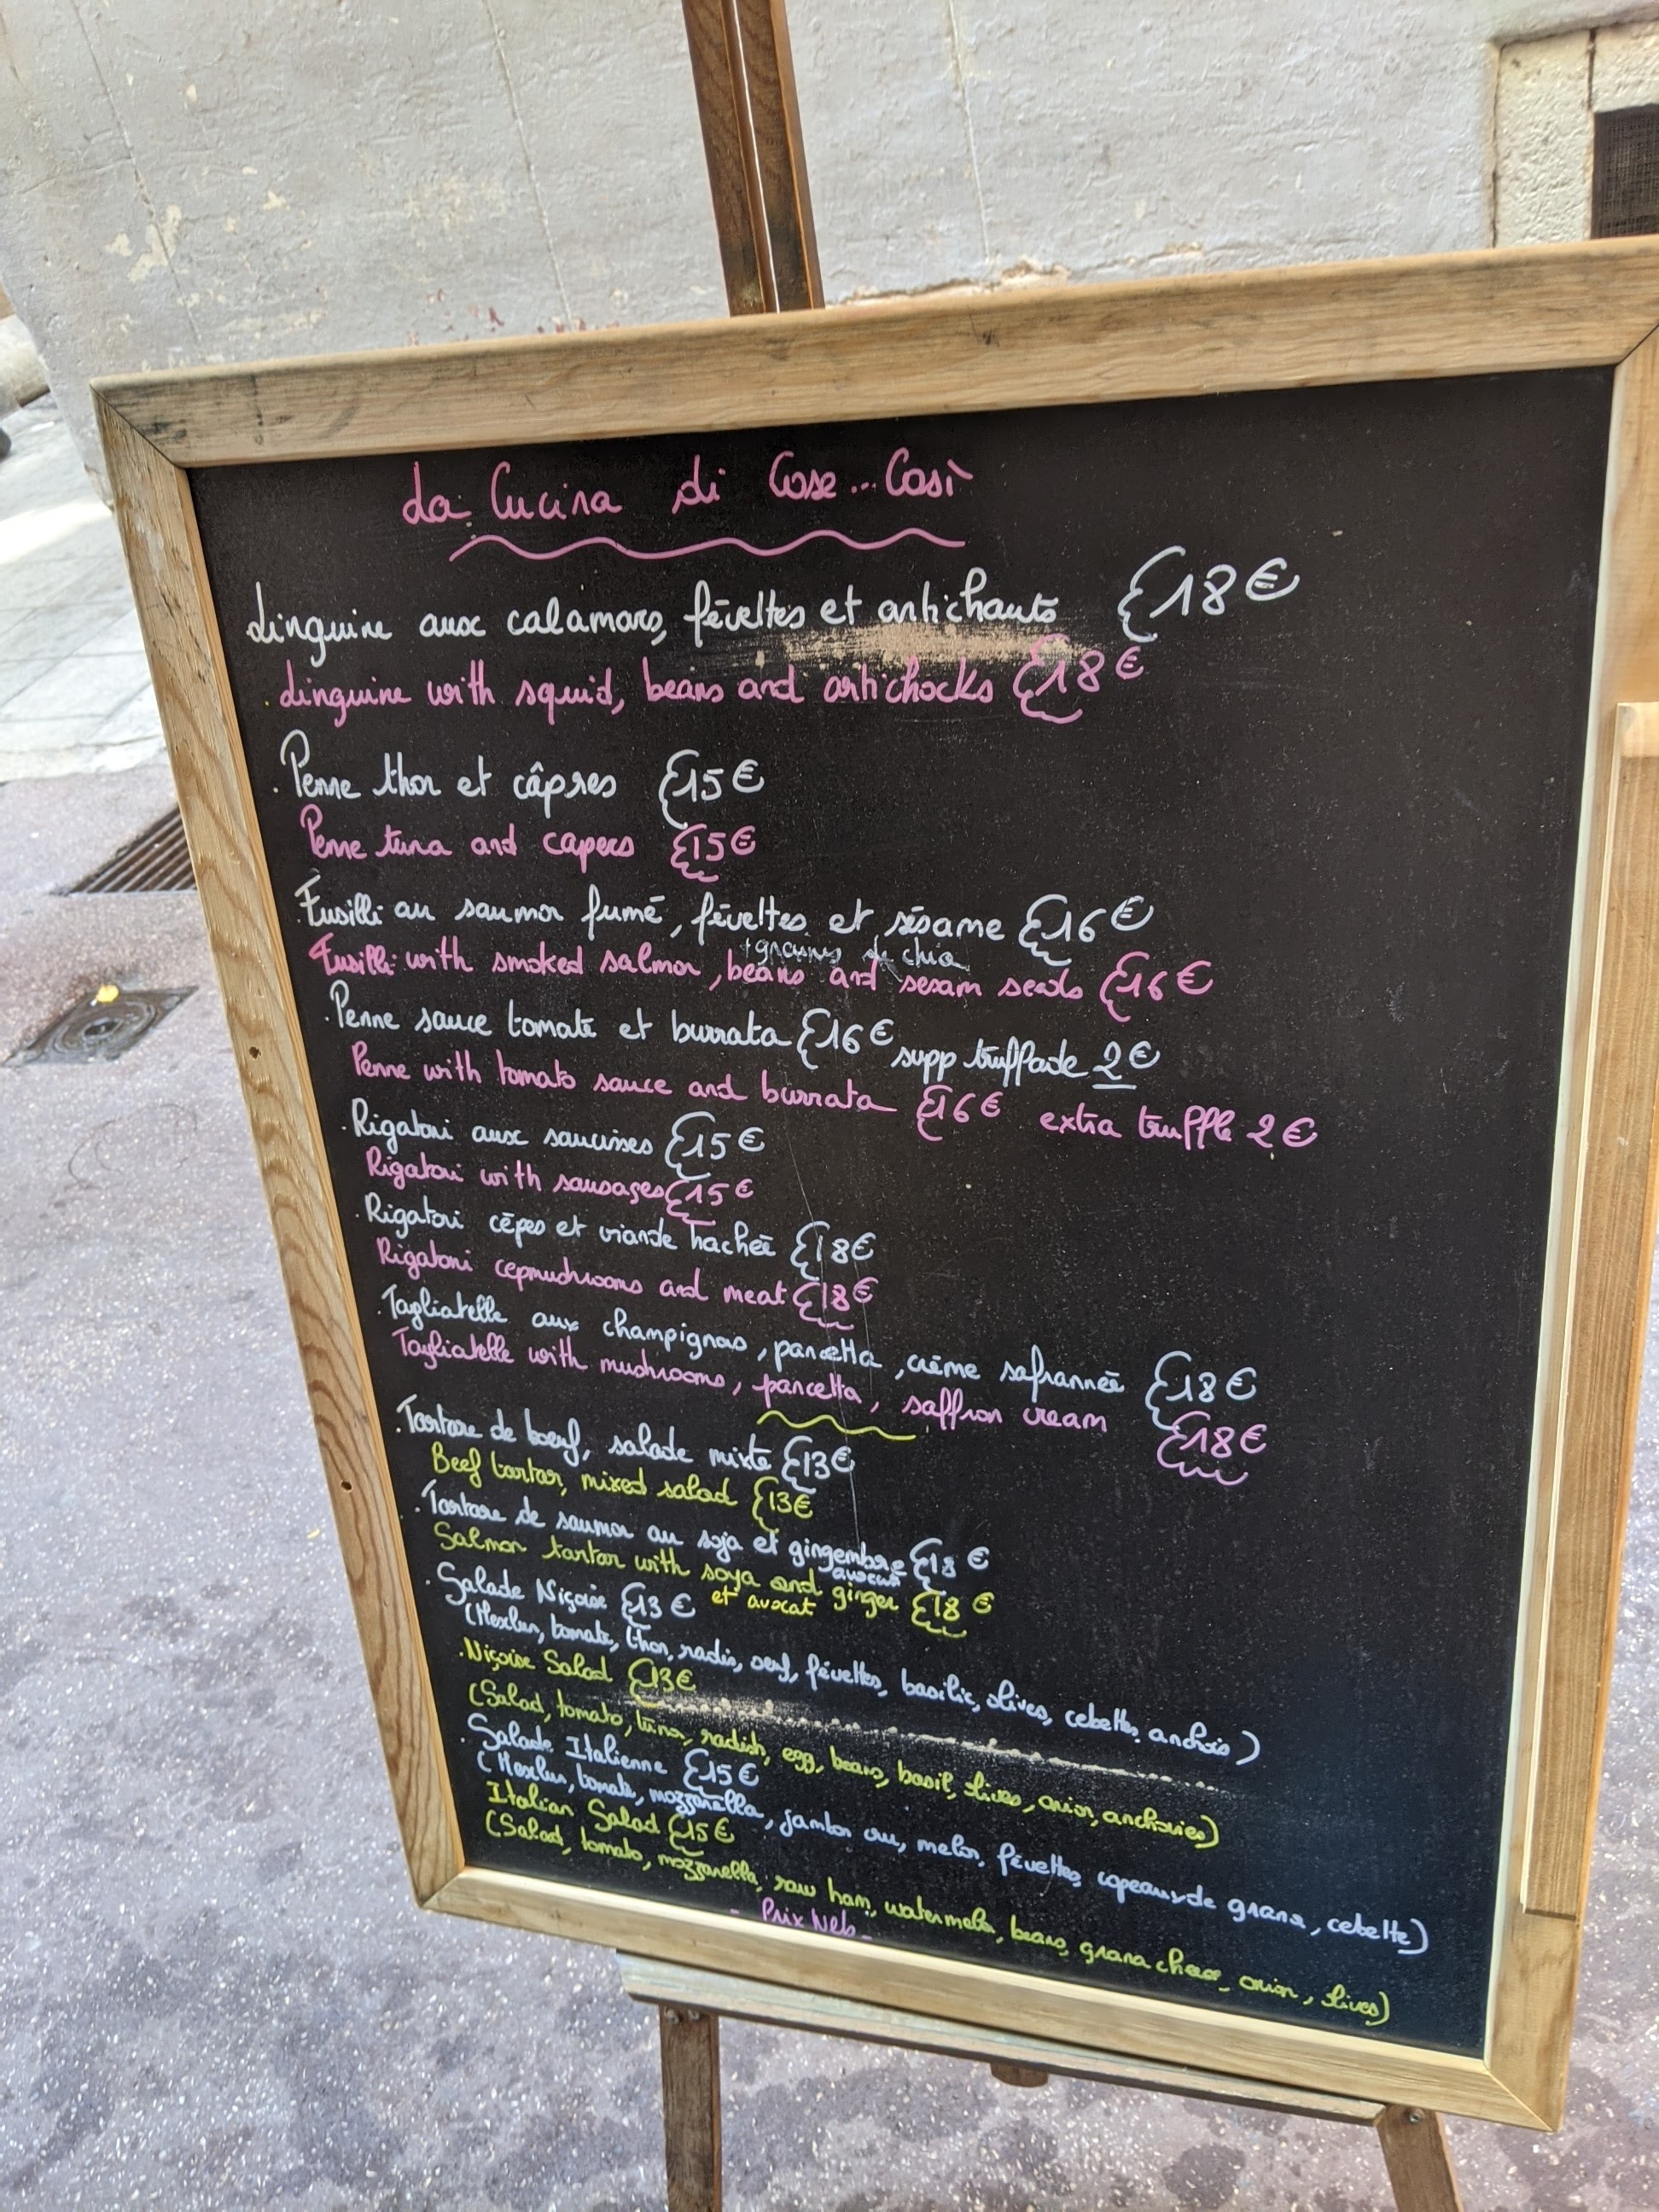 La Cucina di Cose... Così
Linguine aux calamars, févettes et artichauts 18€
Linguine with squid, beans and artichocks 18€
. Penne thon et câpres 15€
Penne tuna and capers 15€
Fusilli au saumon fumé, févettes et sésame 16€
+ graines de chia
Fusilli with smoked salmon, beans and sesam seeds 16€
. Penne sauce tomate et burrata 16€ supp truffade 2€
Penne with tomato sauce and burrata 16€ extra truffle 2€
. Rigatoni aux saucisses 15€
Rigatoni with sausages 15€
. Rigatoni cèpes et viande hachée 18€
Rigatoni cepmushrooms and meat 18€
. Tagliatelle aux champignons, pancetta, crème safrannée 18€
Tagliatelle with mushrooms, pancetta, saffron cream 18€
. Tartare de boeuf, salade mixte 13€
Beef tartar, mixed salad 13€
. Tartare de saumon au soja et gingembre 18€
Salmon tartar with soya and ginger 18€
et avocat
. Salade Niçoise 13€
(Mesclun, tomate, thon, radis, oeuf, févettes, basilic, olives, cebettes, anchois)
. Niçoise Salad 13€
(Salad, tomato, tuna, radish, egg, beans, basil, olives, onion, anchovies)
. Salade Italienne 15€
(Mesclun, tomate, mozzarella, jambon cru, melon, févettes, copeaux de grana, cebette)
Italian Salad 15€
(Salad, tomato, mozzarella, raw ham, watermelon, beans, grana cheese, onion, olives)
- Prix Nets -